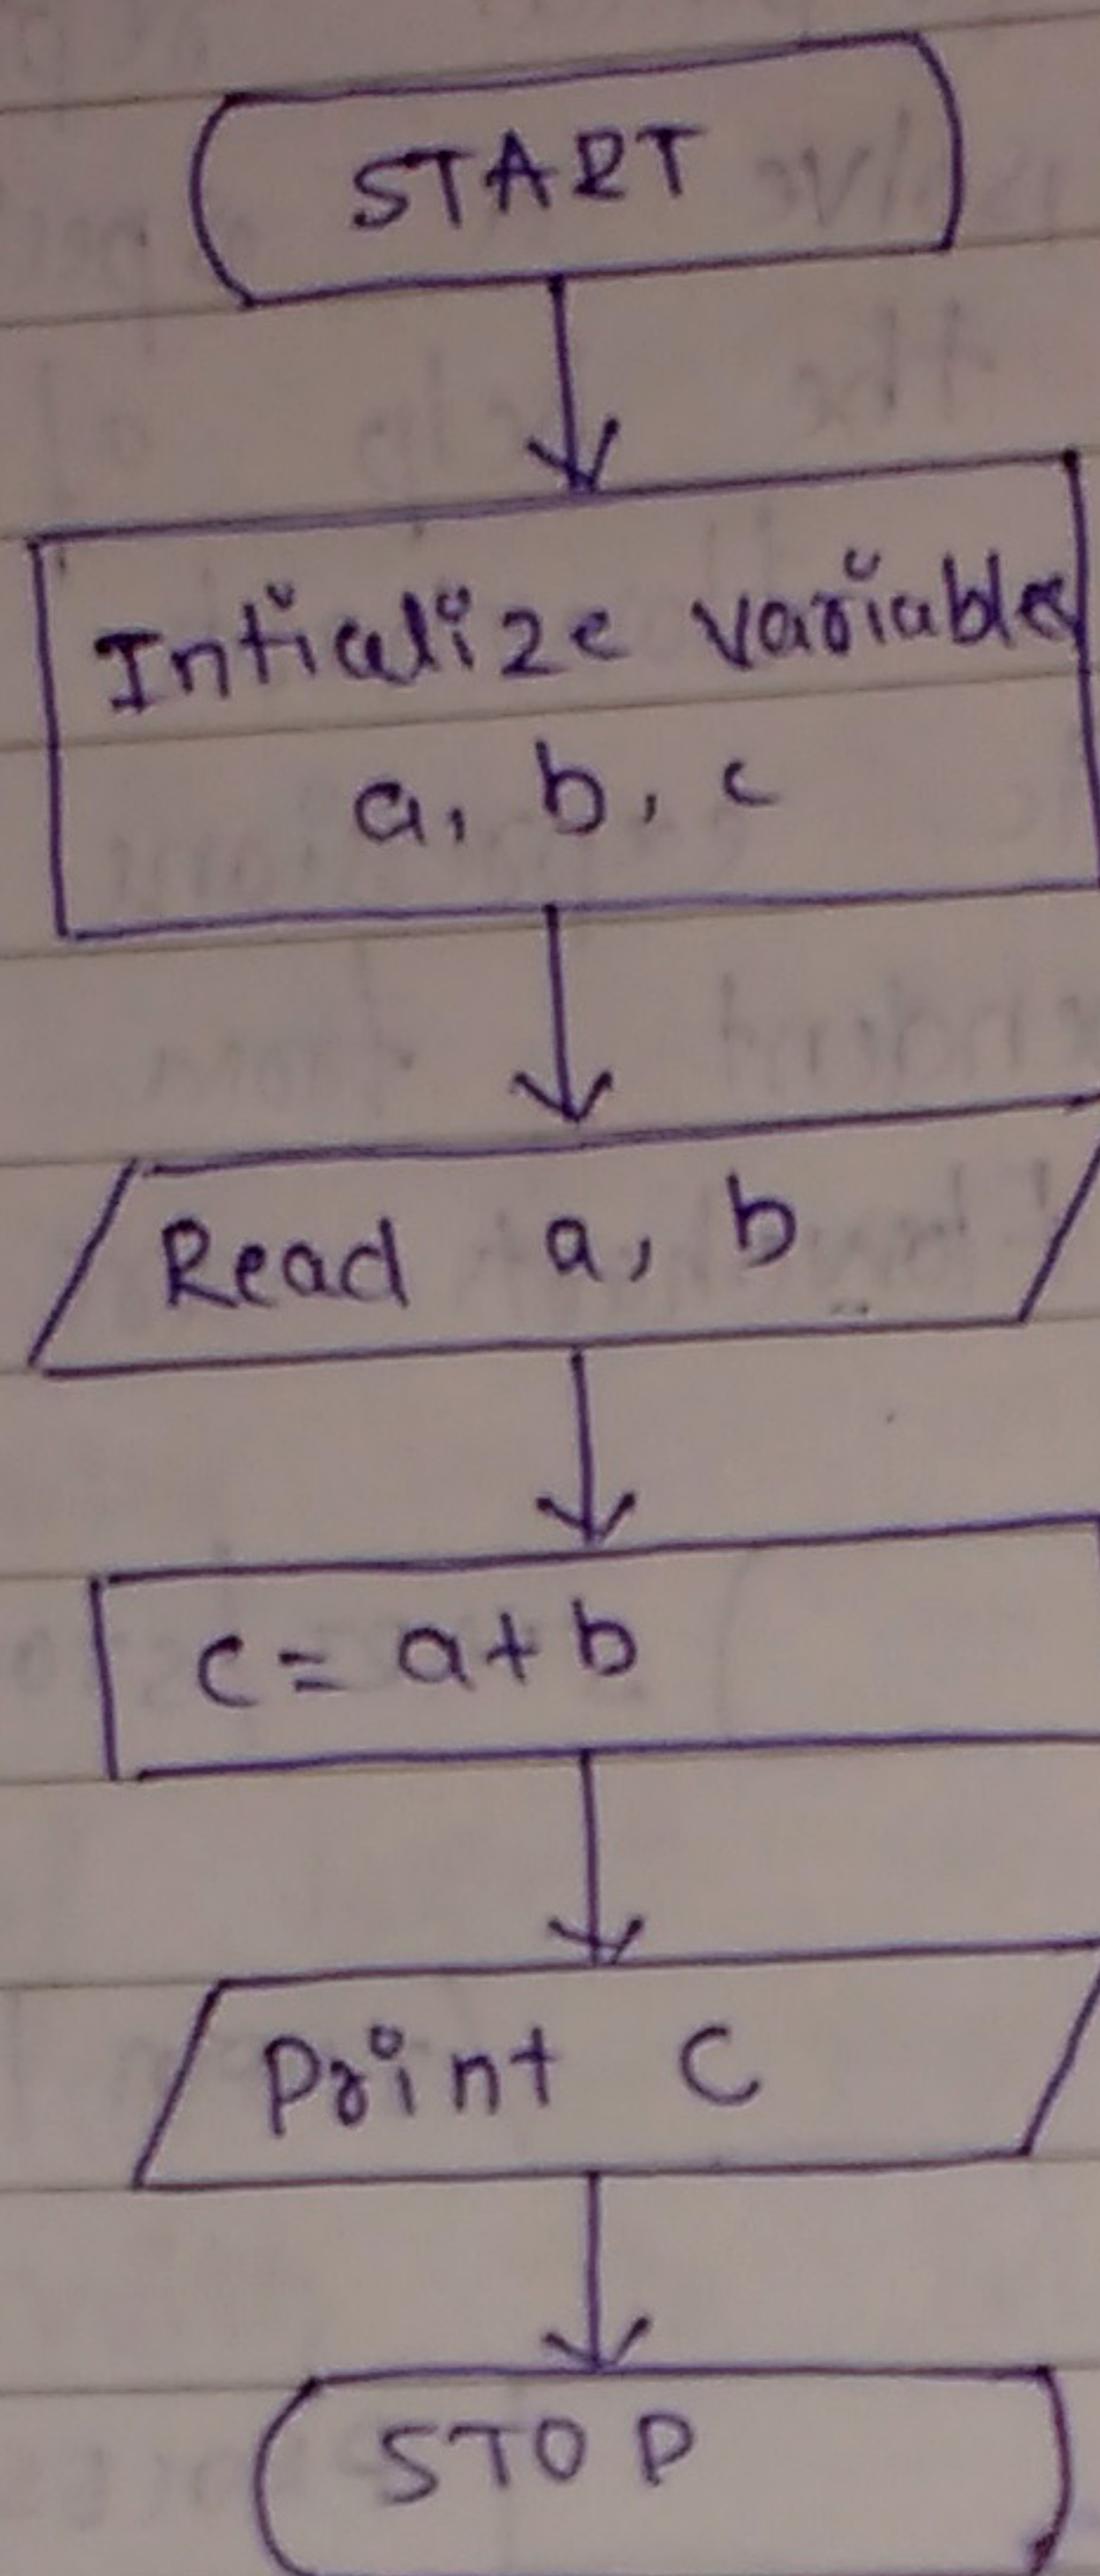 START
Intialize variables
a, b, c
Read a, b
c = a + b
Print C
STOP